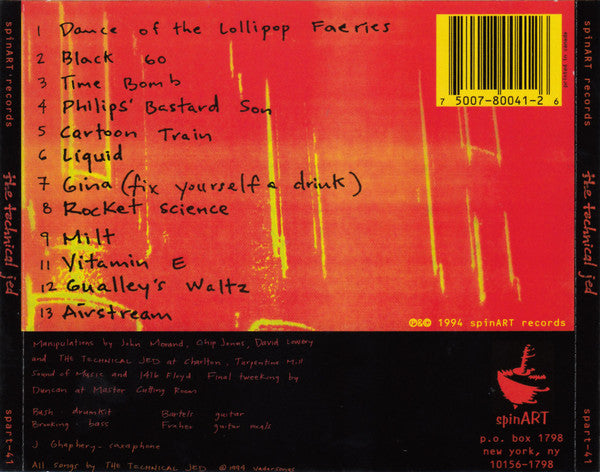 spinART records
the technical jed
spart-41
1 Dance of the Lollipop Faeries
2 Black 60
3 Time Bomb
4 Philips' Bastard Son
5 Cartoon Train
6 Liquid
7 Gina (fix yourself a drink)
8 Rocket Science
9 Milt
11 Vitamin E
12 Gualley's Waltz
13 Airstream
7 5007-80041-2 6
printed in canada
℗&© 1994 spinART records
Manipulations by John Morand, Chip Jones, David Lowery
and THE TECHNICAL JED at Charlton, Tarpentine Mill
Sound of Music and 1416 Floyd Final tweeking by
Duncan at Master Cutting Room
Bash drumkit Bartels guitar
Bruning bass Fraher guitar
J Ghaphery saxaphone
All songs by THE TECHNICAL JED © 1994
spinART
p.o. box 1798
new york, ny
10156-1798
spinART records
the technical jed
spart-41